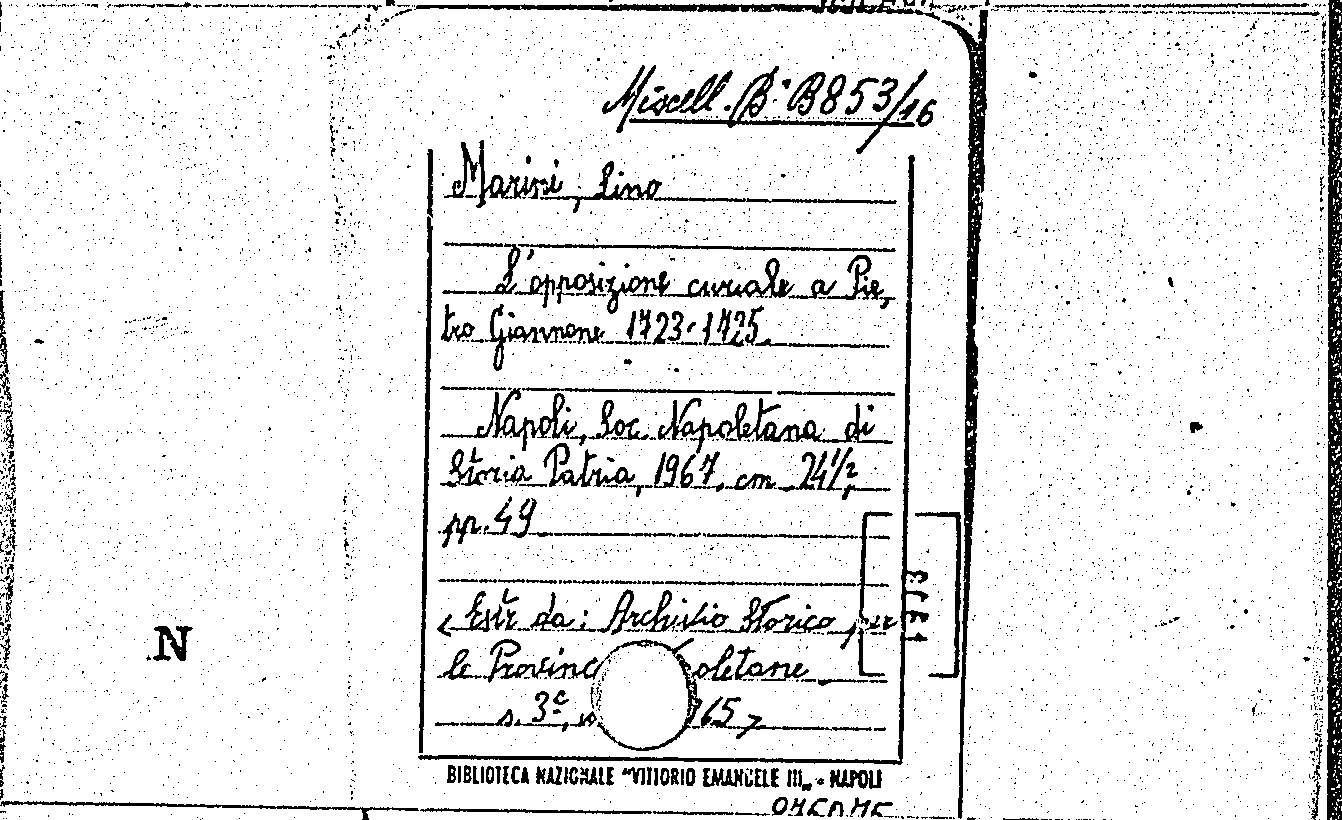 Miscell. B. B853/16
Marini, Lino
L'opposizione curiale a Pie,
tro Giannone 1723-1725.
Napoli, Soc. Napoletana di
Storia Patria, 1967, cm. 24½,
pp. 49
< Estr. da: Archivio Storico per
le Provinc oletane
s. 3ª, 65 >
N
BIBLIOTECA NAZIONALE "VITTORIO EMANUELE III„ - NAPOLI